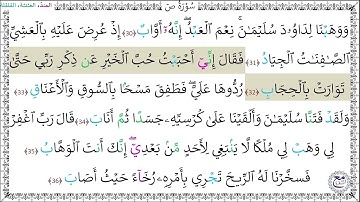 سُورَةُ صٓ
وَوَهَبْنَا لِدَاوُۥدَ سُلَيْمَٰنَۚ نِعْمَ الْعَبْدُ إِنَّهُۥٓ أَوَّابٌ (30) إِذْ عُرِضَ عَلَيْهِ بِالْعَشِيِّ
الصَّٰفِنَٰتُ الْجِيَادُ (31) فَقَالَ إِنِّيٓ أَحْبَبْتُ حُبَّ الْخَيْرِ عَن ذِكْرِ رَبِّي حَتَّىٰ
تَوَارَتْ بِالْحِجَابِ (32) رُدُّوهَا عَلَيَّ فَطَفِقَ مَسْحًۢا بِالسُّوقِ وَالْأَعْنَاقِ (33)
وَلَقَدْ فَتَنَّا سُلَيْمَٰنَ وَأَلْقَيْنَا عَلَىٰ كُرْسِيِّهِۦ جَسَدًا ثُمَّ أَنَابَ (34) قَالَ رَبِّ اغْفِرْ
لِي وَهَبْ لِي مُلْكًا لَّا يَنۢبَغِي لِأَحَدٍ مِّنۢ بَعْدِيٓ إِنَّكَ أَنتَ الْوَهَّابُ (35)
فَسَخَّرْنَا لَهُ الرِّيحَ تَجْرِي بِأَمْرِهِۦ رُخَآءً حَيْثُ أَصَابَ (36)